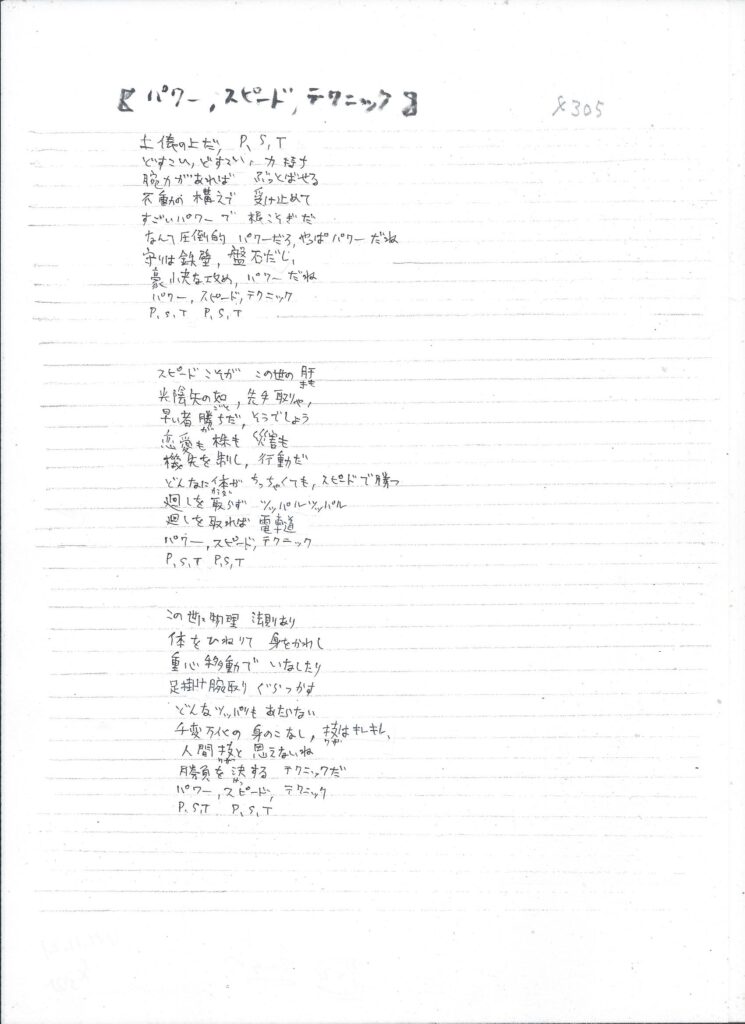 【パワー,スピード,テクニック】
×305
土俵の上だ, P, S, T
どすこい, どすこい, 力持ち
腕力があれば ぶっとばせる
不動の構えで 受け止めて
すごいパワーで 根こそぎだ
なんて圧倒的 パワーだろ, やっぱパワーだね
守りは鉄壁, 盤石だし,
豪快な攻め, パワーだね
パワー, スピード, テクニック
P, S, T P, S, T
スピードこそが この世の肝
きも
光陰矢の如, 先手取りゃ,
ごとく
早い者勝ちだ, そうでしょう
がち
恋愛も株も災害も
機先を制し, 行動だ
どんなに体がちっちゃくても, スピードで勝つ
からだ
廻しを取らず ツッパルツッパル
廻しを取れば 電車道
パワー, スピード, テクニック
P, S, T P, S, T
この世に物理 法則あり
体をひねりて 身をかわし
重心移動で いなしたり
足掛け腕取り ぐらつかす
どんなツッパリもあたらない
千変万化の身のこなし, 技はキレキレ,
わざ
人間技と思えないね
わざ
勝負を決する テクニックだ
けっ
パワー, スピード, テクニック
P, S, T P, S, T